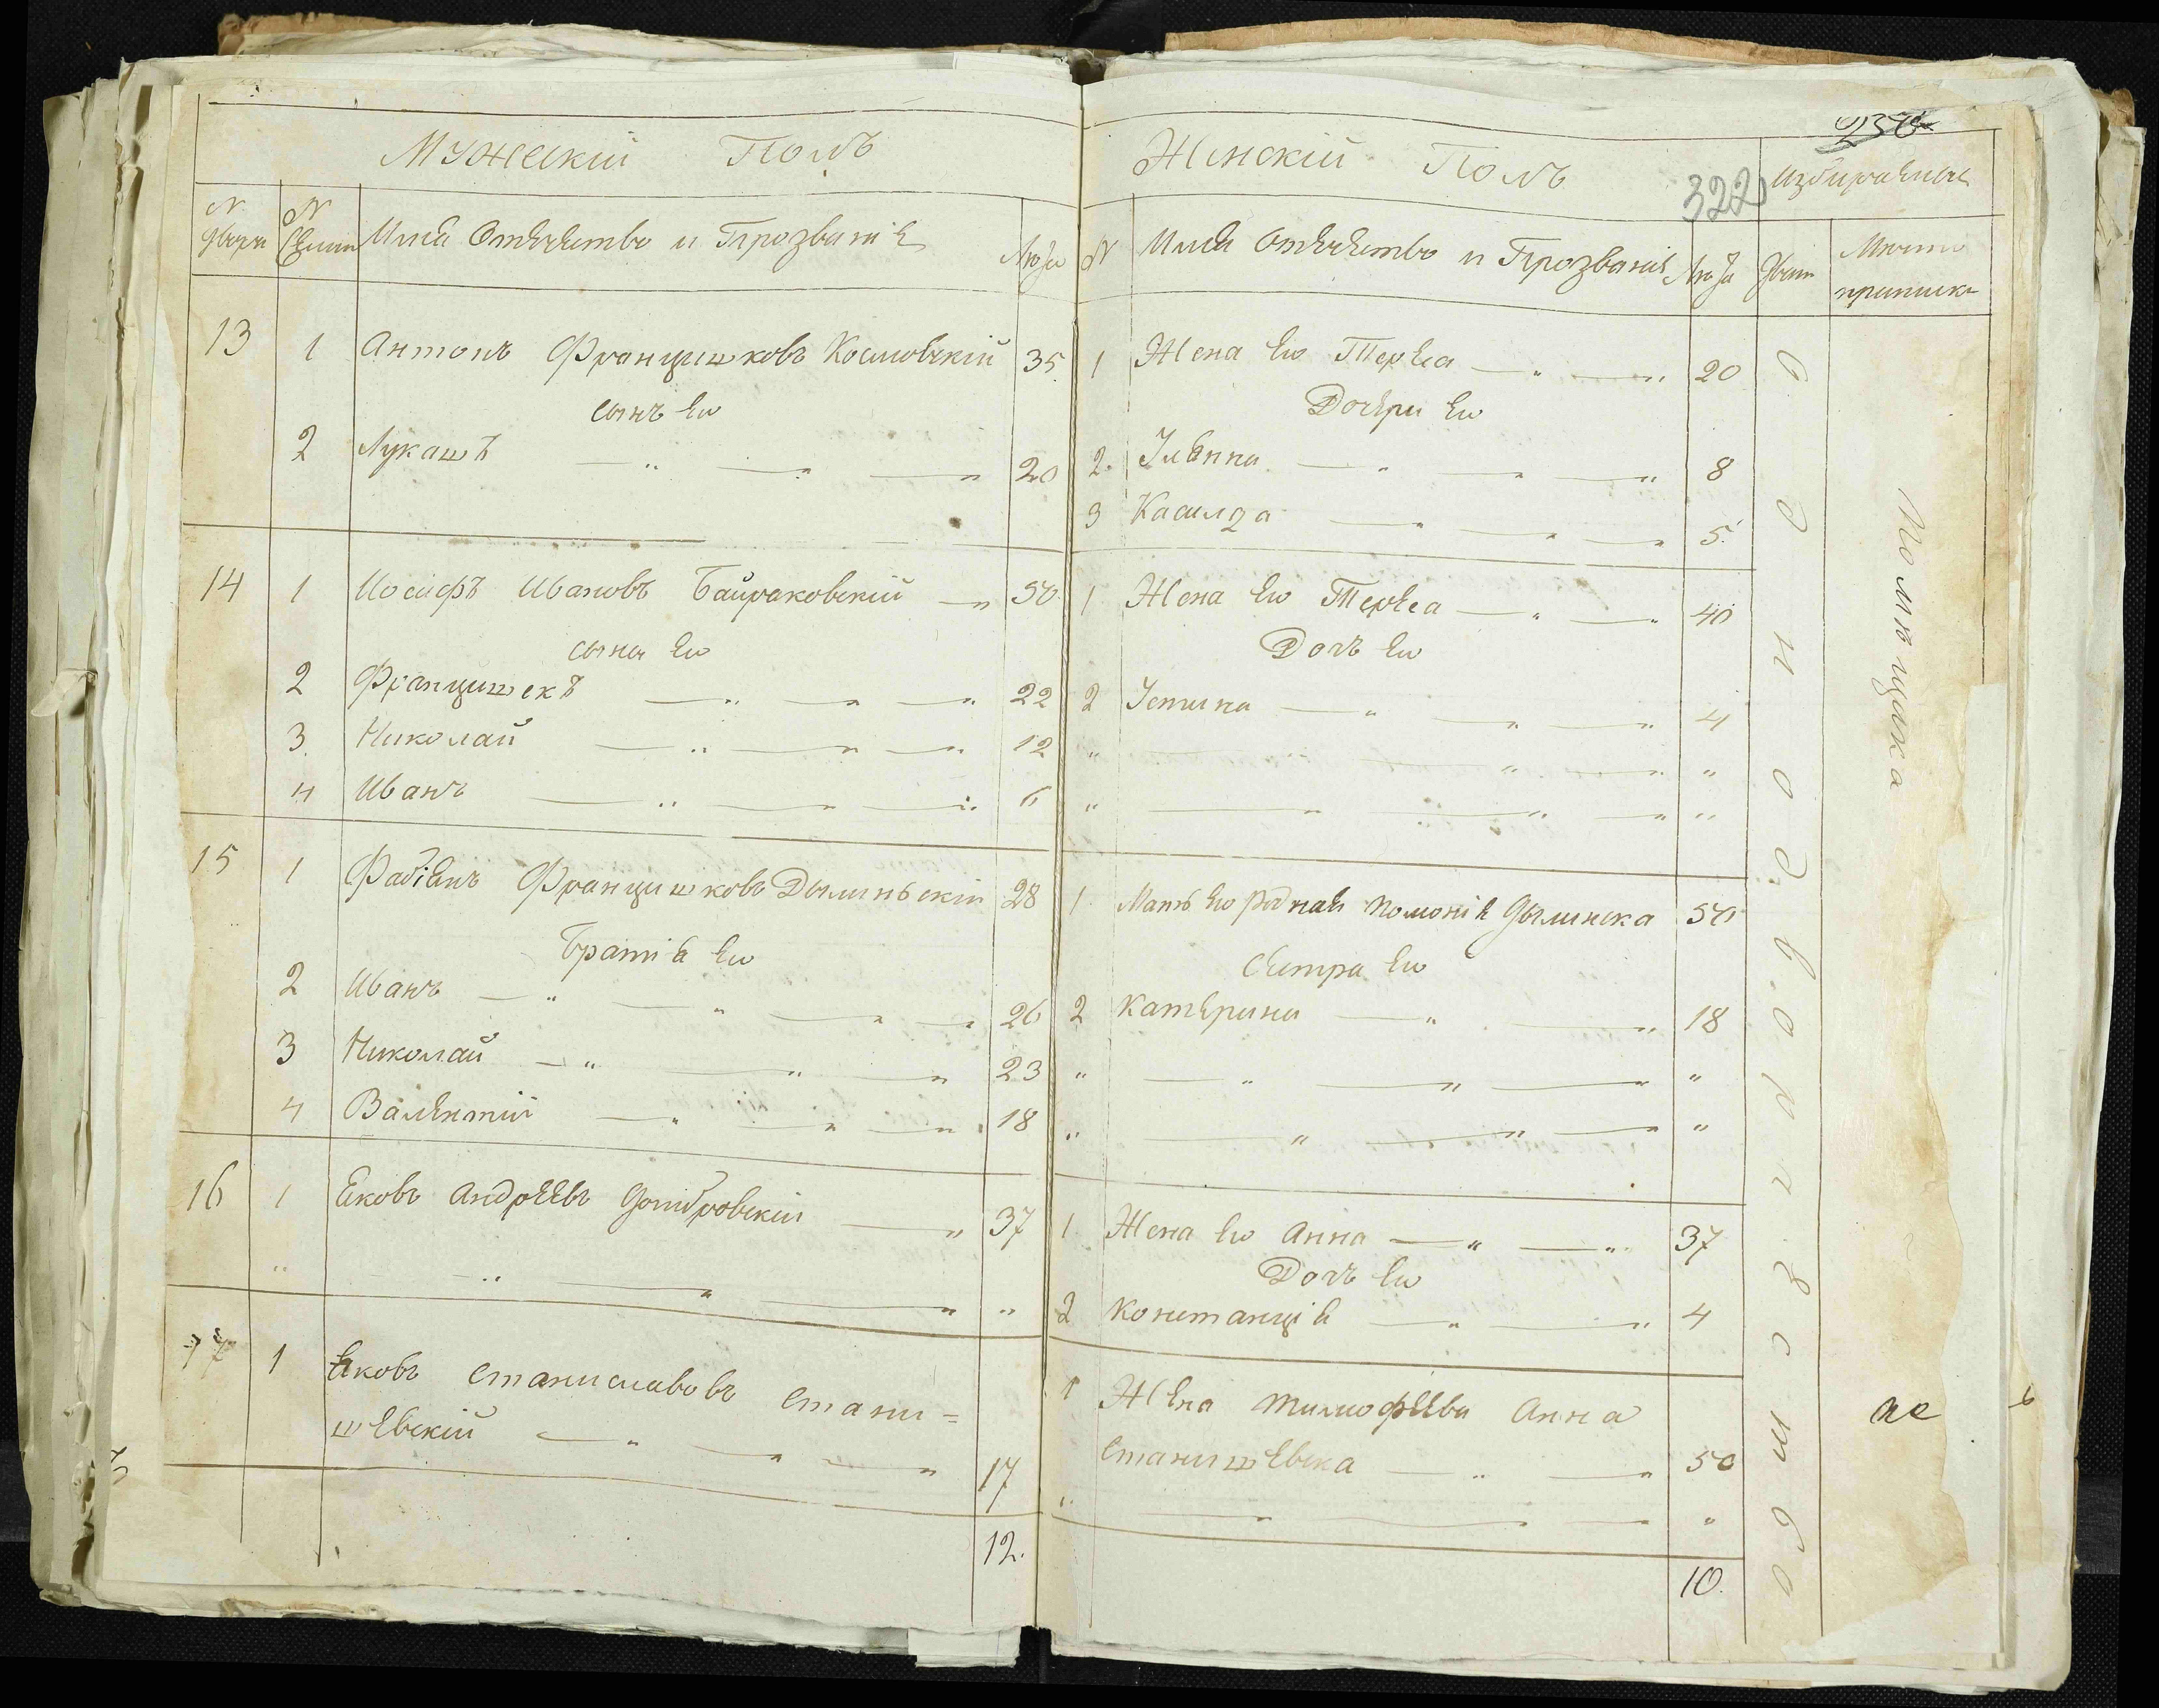 Мужескій Полъ
N двора
N Семи
Имя Отечество и Прозваніе
Лѣта
13 1 Антонъ Францишковъ Козловскій 35
сынъ Его
2 Лукашъ — " — " — " 20
14 1 Иосифъ Ивановъ Байраковскій — " 50
сыны Его
2 Францишекъ — " — " — " 22
3. Николай — " — " — " 12
4 Иванъ — " — " — " 6
15 1 Фабіянъ Францишковъ Дылиньскій 28
Братія Его
2 Иванъ — " — " — " — " 26
3 Николай — " — " — " 23
4 Валентій — " — " — " 18
16 1 Яковъ Андреевъ Домбровскій — " 37
" — " — " — " "
17 1 Яковъ Станиславовъ Стани=
шевскій — " — " — " 17
12.
Женскій Полъ
322
N Имя Отечество и Прозваніе
Лѣта
1 Жена Его Тереса — " — " 20
Дочери Его
2. Улянна — " — " — " 8
3 Касилда — " — " — " 5
1 Жена Его Тереса — " — " 40
Дочъ Его
2 Устина — " — " — " 4
" — " — " "
" — " — " — " "
1 Мать Его родная Полонія Дылинска 50
Сестра Его
2 Катерина — " — " 18
" — " — " — " "
" — " — " — " "
1 Жена Его Анна — " — " 37
Дочъ Его
2 Констанція — " — " 4
1 Жена Тимофеева Анна
Станишевска — " — " 50
" — " — " — " "
10.
Однодворческо
Помѣщика